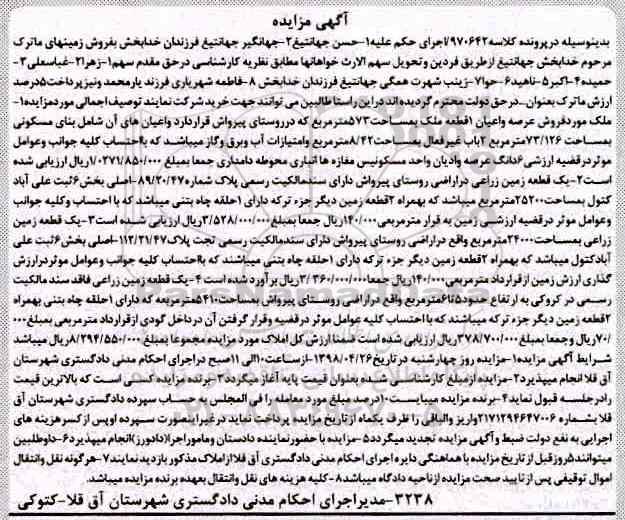 آگهی مزایده
بدینوسیله درپرونده کلاسه۹۷۰۶۴۲/اجرای حکم علیه۱-حسن جهانتیغ۲-جهانگیر جهانتیغ فرزندان خدابخش بفروش زمینهای ماترک
مرحوم خدابخش جهانتیغ ازطریق فردین وتحویل سهم الارث خواهانها مطابق نظریه کارشناسی درحق مقدم سهم۱-زهرا۲-غباسعلی۳-
حمیده۴-اکبر۵-ناهید۶-حوا۷-زینب شهرت همگی جهانتیغ فرزندان خدابخش ۸-فاطمه شهریاری فرزند یارمحمد ونیزپرداخت۵درصد
ارزش ماترک بعنوان...درحق دولت محترم گردیده اند دراین راستا طالبین می توانند جهت خرید شرکت نمایند توصیف اجمالی موردمزایده۱-
ملک موردفروش عرصه واعیان ۱قطعه ملک بمساحت۵۷۳مترمربع که درروستای پیرواش قراردارد واعیان های آن شامل بنای مسکونی
بمساحت ۷۳/۱۲۶مترمربع ۲باب غیرفعال بمساحت۸/۴۲مترمربع وامتیازات آب وبرق وگاز میباشدکه بااحتساب کلیه جوانب وعوامل
موثردرقضیه ارزشی ۶دانگ عرصه وادیان واحد مسکونیس مغازه ها انباری محوطه دامداری جمعا بمبلغ ۱/۰۲۷۱/۸۵۰/۰۰۰ریال ارزیابی شده
است۲-یک قطعه زمین زراعی دراراضی روستای پیرواش دارای سندمالکیت رسمی پلاک شماره۸۹/۲۰/۴۷-اصلی بخش۶ثبت علی آباد
کتول بمساحت۲۵۲۰۰مترمربع میباشد که بهمراه ۲قطعه زمین دیگر جزء ترکه دارای ۱حلقه چاه بتنی میباشد که با احتساب وکلیه جوانب
وعوامل موثر درقضیه ارزشی زمین به قرار مترمربعی۱۴۰/۰۰۰ریال جمعا بمبلغ۳/۵۲۸/۰۰۰/۰۰۰ریال ارزیابی شده است۳-یک قطعه زمین
زراعی بمساحت۲۴۰۰۰مترمربع واقع دراراضی روستای پیرواش دارای سندمالکیت رسمی تحت پلاک۱۱۲/۲۱/۴۷-اصلی بخش۶ثبت علی
آبادکتول میباشد که بهمراه ۲قطعه زمین دیگر جزء ترکه دارای ۱حلقه چاه بتنی میباشند که بااحتساب کلیه جوانب وعوامل موثردرارزش
گذاری ارزش زمین ازقرارداد مترمربعی۱۴۰/۰۰۰ریال جمعا۳/۳۶۰/۰۰۰/۰۰۰ریال برآورد شده است ۴-یک قطعه زمین زراعی فاقد سند مالکیت
رسمی در کروکی به ارتفاع حدود۵تا۶مترمربع واقع دراراضی روستای پیرواش بمساحت۵۴۱۰مترمربعه که دارای ۱حلقه چاه بتنی بهمراه
۲قطعه زمین دیگر جزء ترکه میباشند که با احتساب کلیه عوامل موثر درقضیه وقرار گرفتن آن درداخل گودی ازقرارداد مترمربعی بمبلغ۰۰۰
/۷۰ریال و جمعا بمبلغ ۳۷۸/۷۰۰/۰۰۰ریال ارزیابی شده است ضمنا ارزش کل املاک مورد مزایده مجموعا بمبلغ ۸/۲۹۴/۵۵۰/۰۰۰ریال میباشد
شرایط آگهی مزایده۱-مزایده روز چهارشنبه در تاریخ۱۳۹۸/۰۴/۲۶-ازساعت۱۰الی ۱۱صبح دراجرای احکام مدنی دادگستری شهرستان
آق قلا انجام میپذیرد۲-مزایده ازمبلغ کارشناسی شده بعنوان قیمت پایه آغاز میگردد۳-برنده مزایده کسی است که بالاترین قیمت
رادرجلسه قبول نماید۴-برنده مزایده میبایست۱۰درصد مبلغ مورد معامله را فی المجلس به حساب سپرده دادگستری شهرستان آق
قلا بشماره ۲۱۷۱۲۹۴۶۴۷۰۰۶واریز والباقی را ظرف یکماه ازتاریخ مزایده پرداخت نماید درغیراینصورت سپرده اوپس ازکسرهزینه های
اجرایی به نفع دولت ضبط وآگهی مزایده تجدید میگردد۵-مزایده با حضورنماینده دادستان وماموراجرا(دادورز)انجام میپذیرد۶-داوطلبین
میتوانند۵روزقبل ازتاریخ مزایده با هماهنگی دایره اجرای احکام مدنی دادگستری آق قلا ازاملاک مذکور بازدید نمایند۷-هرگونه نقل وانتقال
اموال توقیفی پس ازتایید صحت مزایده ازناحیه دادگاه میباشد۸-کلیه هزینه های نقل وانتقال بعهده برنده مزایده میباشد.
۳۲۳۸-مدیراجرای احکام مدنی دادگستری شهرستان آق قلا-کتوکی